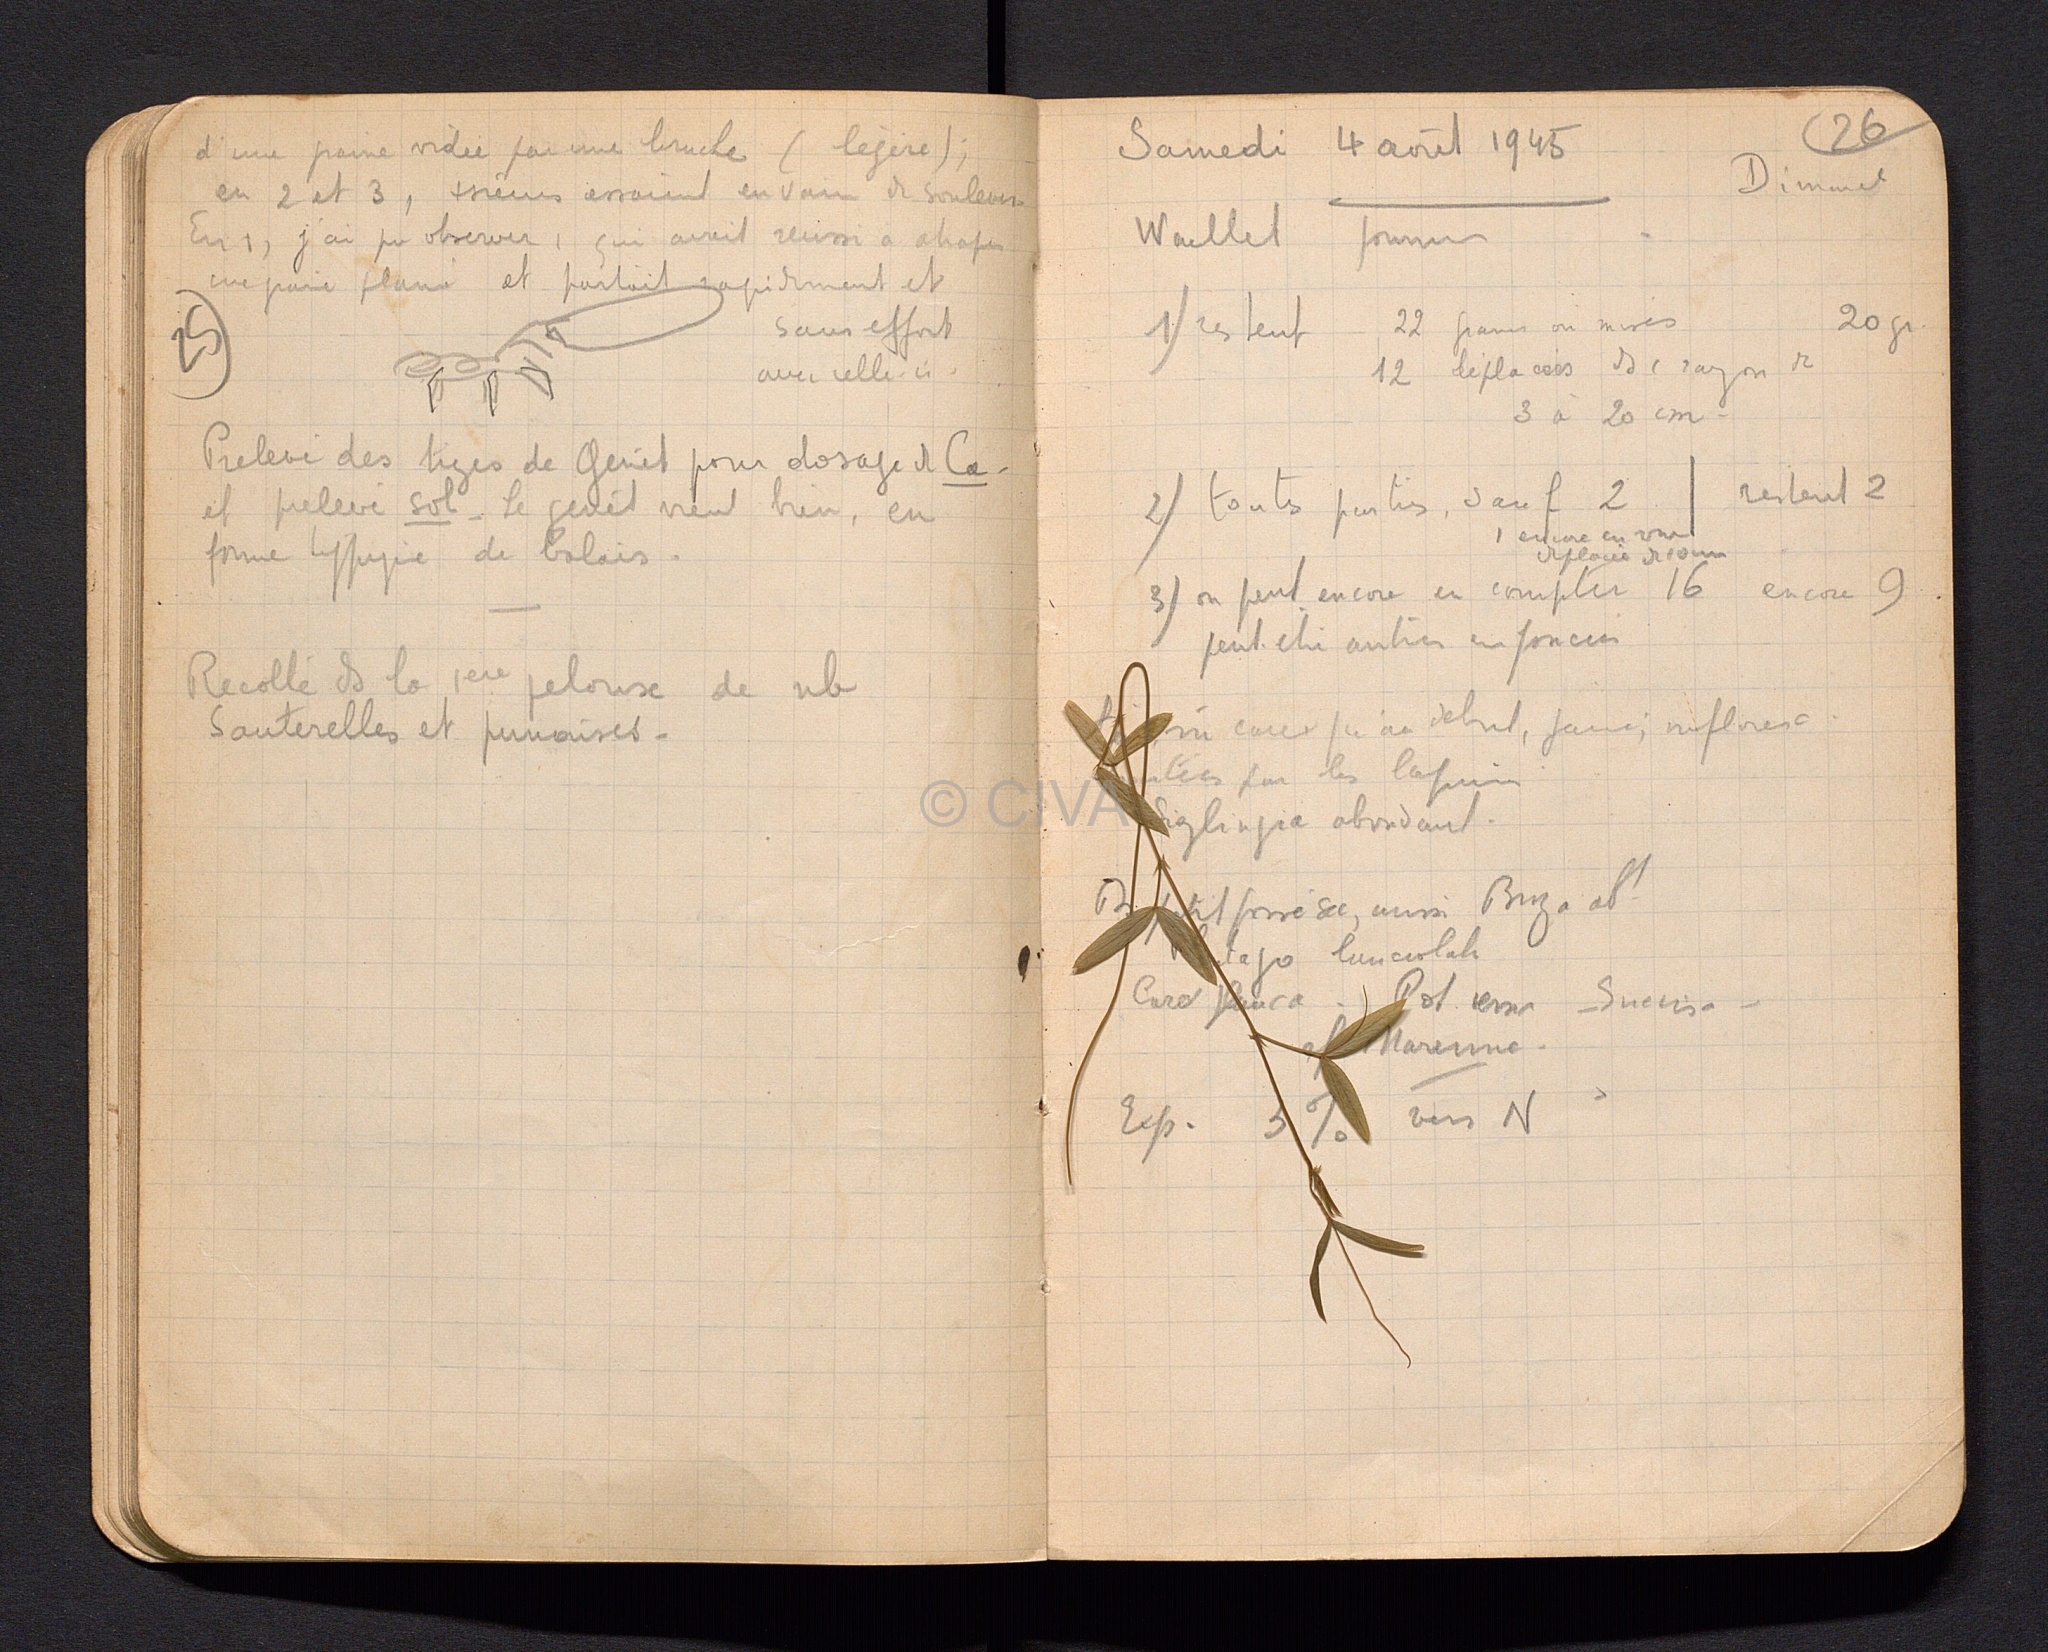 d'une graine vidée par une bruche (légère);
en 2 et 3, essaient en vain de soulever
En 1, j'ai pu observer 1 qui avait réussi a
une et partait rapidement et
25)
sans effort
avec celle-ci.
Prelevé des tiges de Genêt pour dosage de Ca.
et prelevé sol - Le genêt vient bien, en
forme de balais.
Recolté ds la 1ère pelouse de nb
Sauterelles et punaises.
26
Samedi 4 août 1945
Dimanc
1) restent 22 graines 20 gr.
12 déplacées ds 1 rayon de
3 à 20 cm.
2) toutes parties, sauf 2 | restent 2
1 encore en vue
déplacée de 10 cm
3) on peut encore en compter 16 encore 9
peut être autres enfoncées
début, inflores
par les lapins
abondant.
petit fossé sec, aussi Briza abt
lanceolata
Carex glauca. Pot. - Succisa -
Exp. 5% vers N
© CIVA